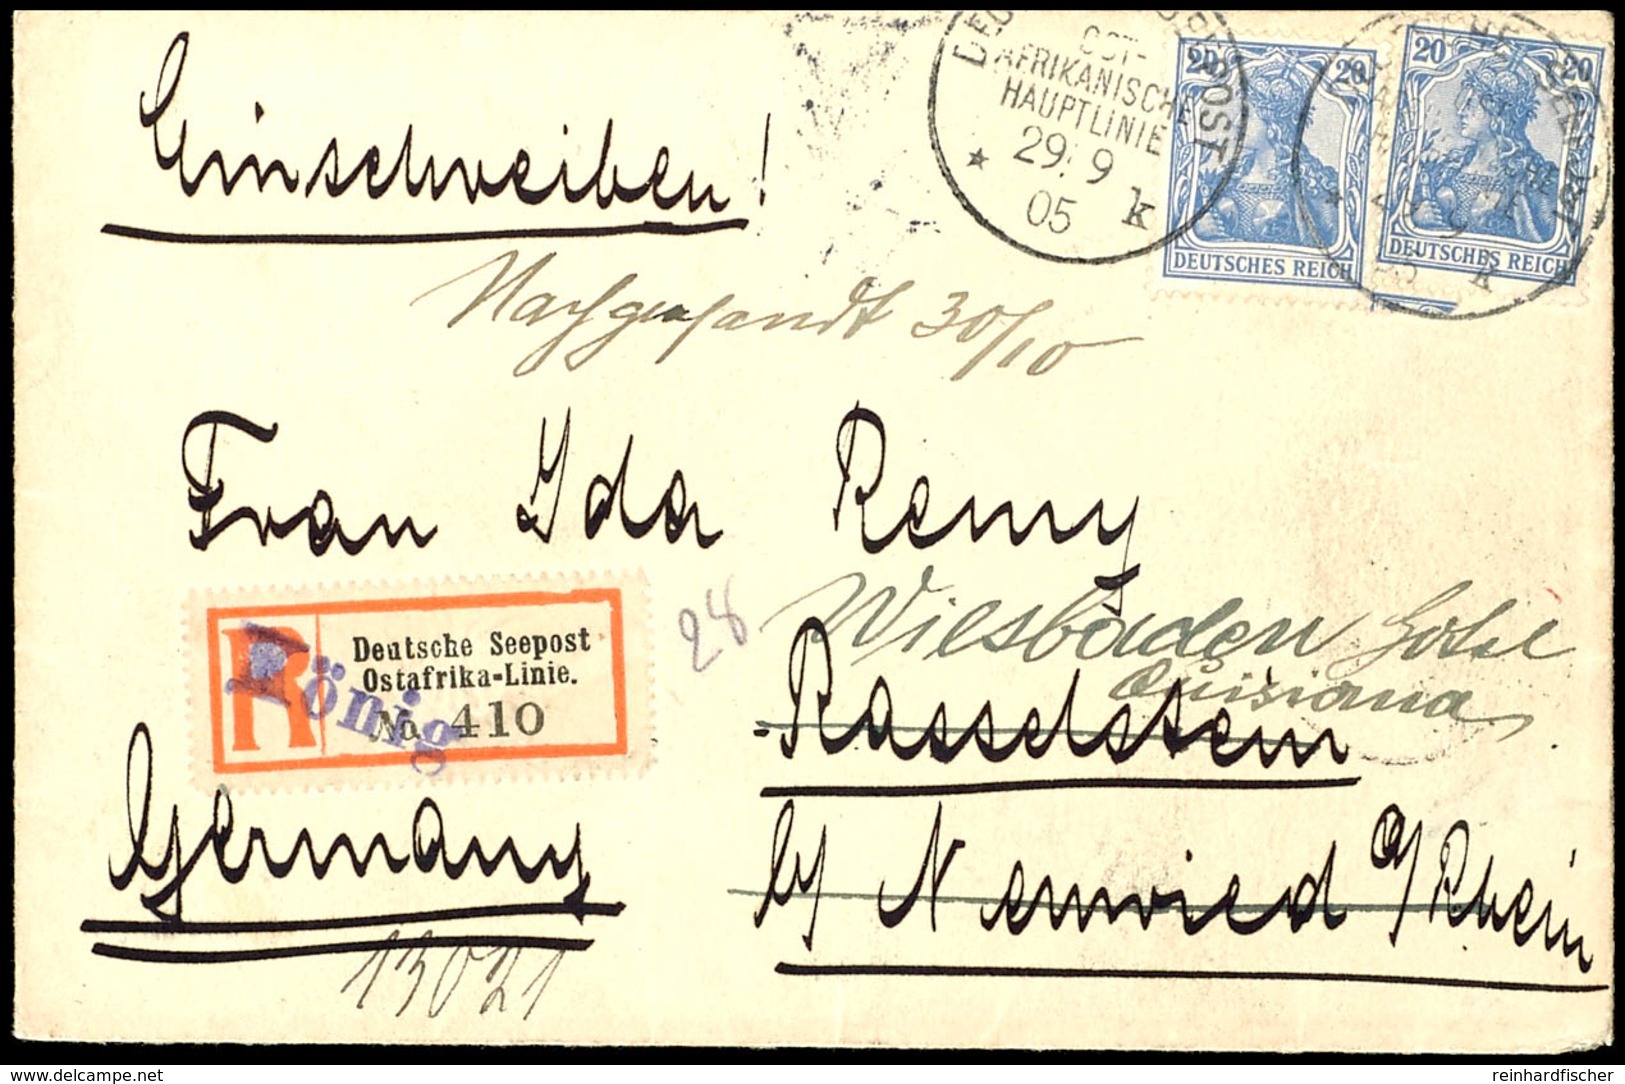 Einschreiben!
OST-
AFRIKANISCHE
HAUPTLINIE
29. 9
05 k
20 20
DEUTSCHES REICH
20 20
DEUTSCHES REICH
k
Nachgesandt 30/10
Frau Ida Remy
28
Wiesbaden Hotel
Quisisana
R
Deutsche Seepost
Ostafrika-Linie.
No. 410
König
Rasselstein
b/ Neuwied a/Rhein
Germany
13021
delcampe.net
reinhardfischer